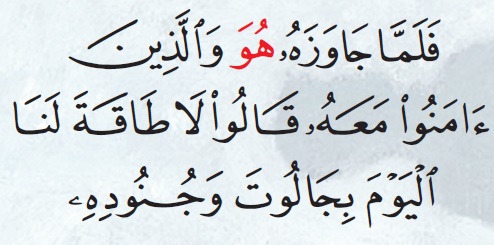 فَلَمَّا جَاوَزَهُۥ هُوَ وَٱلَّذِينَ
ءَامَنُوا۟ مَعَهُۥ قَالُوا۟ لَا طَاقَةَ لَنَا
ٱلْيَوْمَ بِجَالُوتَ وَجُنُودِهِۦ